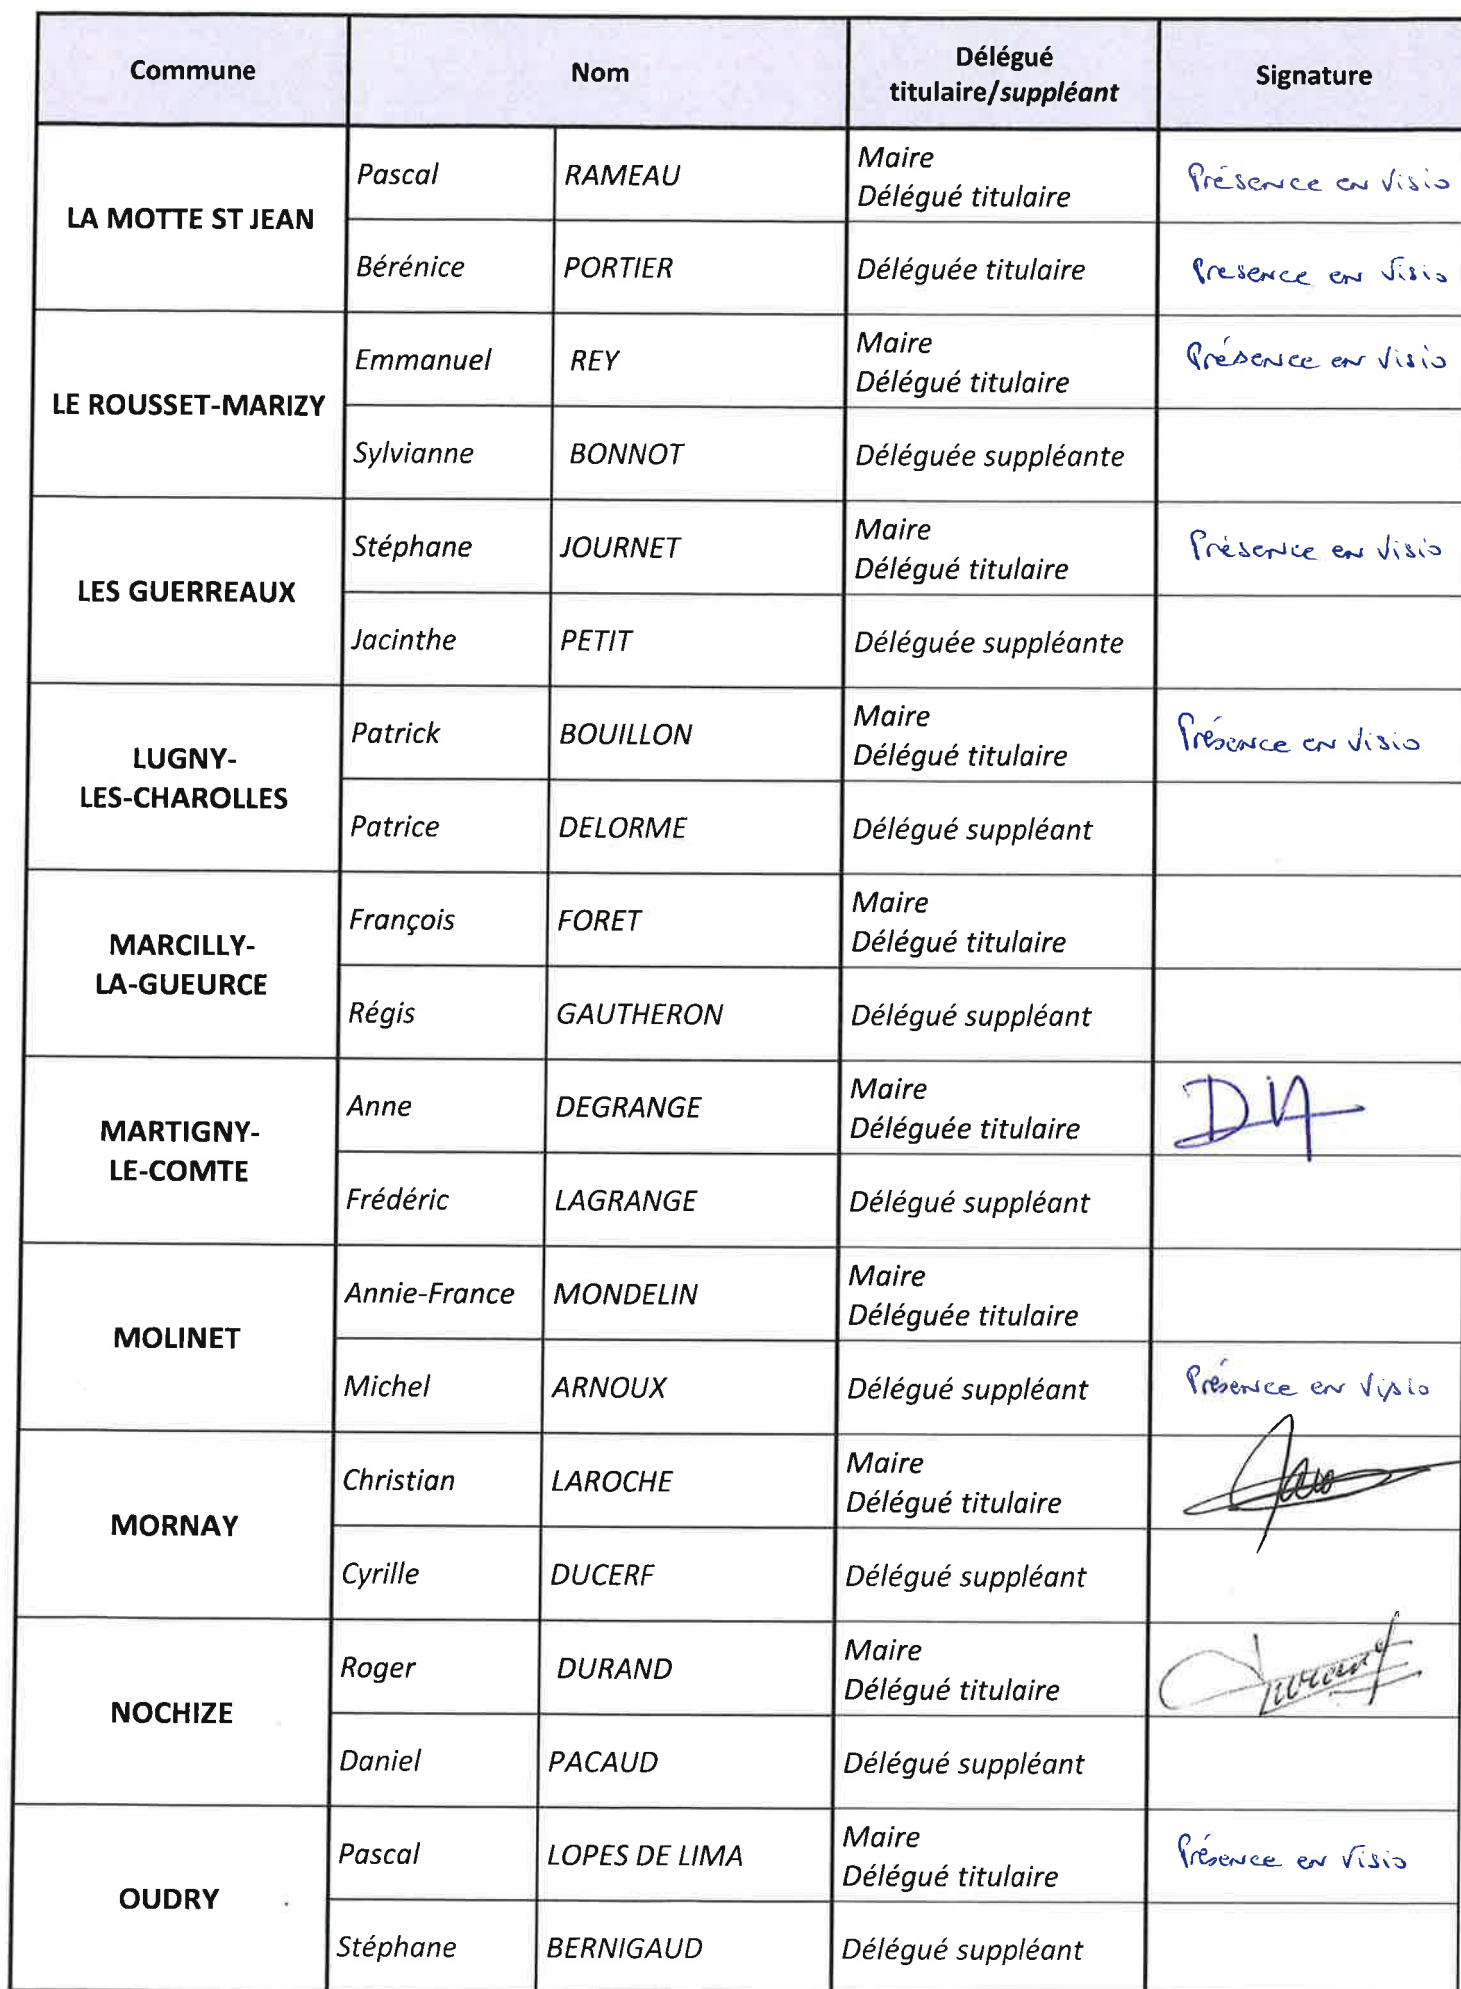 Commune
Nom
Délégué
titulaire/suppléant
Signature
LA MOTTE ST JEAN
Pascal
RAMEAU
Maire
Délégué titulaire
Présence en Visio
Bérénice
PORTIER
Déléguée titulaire
Presence en Visio
LE ROUSSET-MARIZY
Emmanuel
REY
Maire
Délégué titulaire
Présence en Visio
Sylvianne
BONNOT
Déléguée suppléante
LES GUERREAUX
Stéphane
JOURNET
Maire
Délégué titulaire
Présence en Visio
Jacinthe
PETIT
Déléguée suppléante
LUGNY-
LES-CHAROLLES
Patrick
BOUILLON
Maire
Délégué titulaire
Présence en Visio
Patrice
DELORME
Délégué suppléant
MARCILLY-
LA-GUEURCE
François
FORET
Maire
Délégué titulaire
Régis
GAUTHERON
Délégué suppléant
MARTIGNY-
LE-COMTE
Anne
DEGRANGE
Maire
Déléguée titulaire
Frédéric
LAGRANGE
Délégué suppléant
MOLINET
Annie-France
MONDELIN
Maire
Déléguée titulaire
Michel
ARNOUX
Délégué suppléant
Présence en Visio
MORNAY
Christian
LAROCHE
Maire
Délégué titulaire
Cyrille
DUCERF
Délégué suppléant
NOCHIZE
Roger
DURAND
Maire
Délégué titulaire
Daniel
PACAUD
Délégué suppléant
OUDRY
Pascal
LOPES DE LIMA
Maire
Délégué titulaire
Présence en Visio
Stéphane
BERNIGAUD
Délégué suppléant